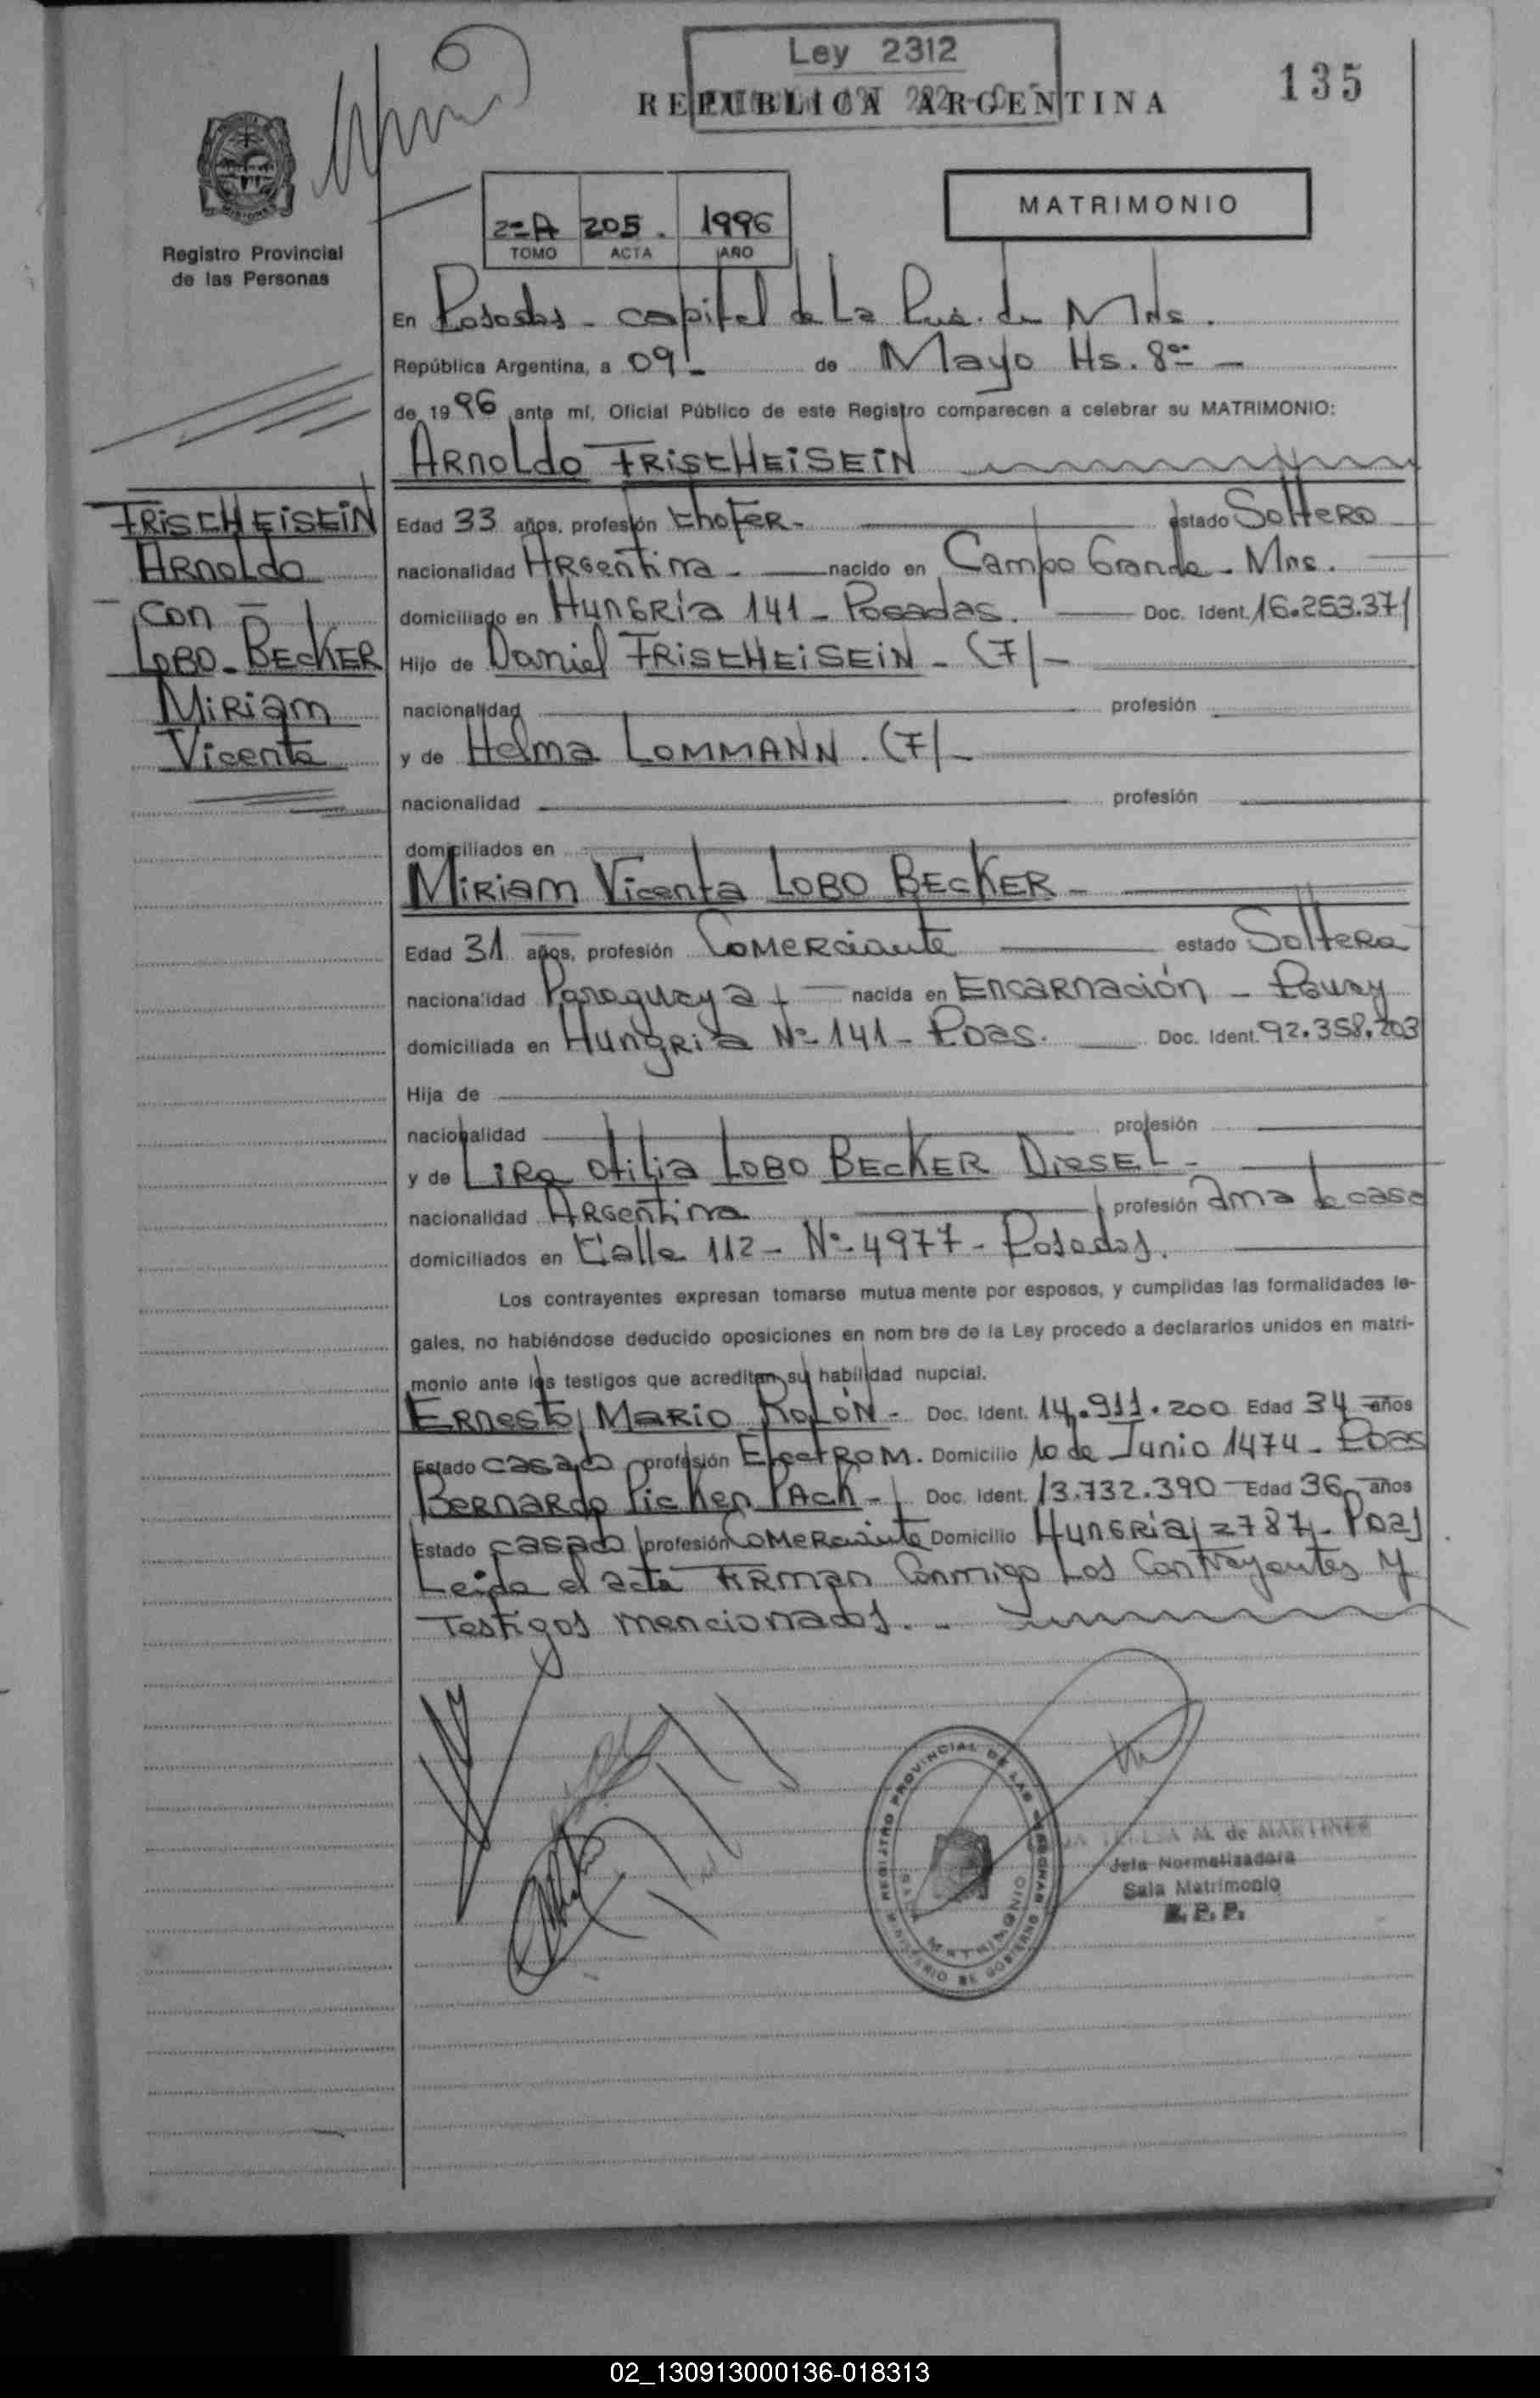 Ley 2312
REPUBLICA ARGENTINA
135
Registro Provincial
de las Personas
2=A 205. 1996
TOMO ACTA AÑO
MATRIMONIO
En Posadas - capital de La Pvia. de Mnes.
República Argentina, a 09.- de Mayo Hs. 8=
de 1996 ante mí, Oficial Público de este Registro comparecen a celebrar su MATRIMONIO:
Arnoldo FRISCHEISEIN
FRISCHEISEIN
Arnoldo
con
LOBO-BECKER
Miriam
Vicenta
Edad 33 años, profesión chofer - estado Soltero
nacionalidad Argentina - nacido en Campo Grande - Mnes.
domiciliado en Hungría 141 - Posadas. Doc. Ident. 16.253.371
Hijo de Daniel FRISCHEISEIN - (F)-
nacionalidad profesión
y de Helma LOMMANN. (F)-
nacionalidad profesión
domiciliados en
Miriam Vicenta LOBO BECKER -
Edad 31 años, profesión Comerciante estado Soltera
nacionalidad Paraguaya nacida en Encarnación - Pguay
domiciliada en Hungria Nº 141 - Pdas. Doc. Ident. 92.358.203
Hija de
nacionalidad profesión
y de Lira Otilia LOBO BECKER DIESEL -
nacionalidad Argentina profesión ama de casa
domiciliados en Calle 112 - Nº 4977 - Posadas.
Los contrayentes expresan tomarse mutua mente por esposos, y cumplidas las formalidades le-
gales, no habiéndose deducido oposiciones en nom bre de la Ley procedo a declararlos unidos en matri-
monio ante los testigos que acreditan su habilidad nupcial.
Ernesto Mario ROLÓN - Doc. Ident. 14.911.200 Edad 34 años
Estado casado profesión Electrom. Domicilio 10 de Junio 1474 - Pdas
Bernardo Picken Pach - Doc. Ident. 13.732.390 Edad 36 años
Estado casado profesión Comerciante Domicilio Hungría 2787 - Pdas
Leida el acta firman conmigo los contrayentes y
testigos mencionados. -
REGISTRO PROVINCIAL DE LAS PERSONAS
MATRIMONIO
MINISTERIO DE GOBIERNO
TERESA M. de MARTINEZ
Jefa Normalizadora
Sala Matrimonio
R. P. P.
02_130913000136-018313